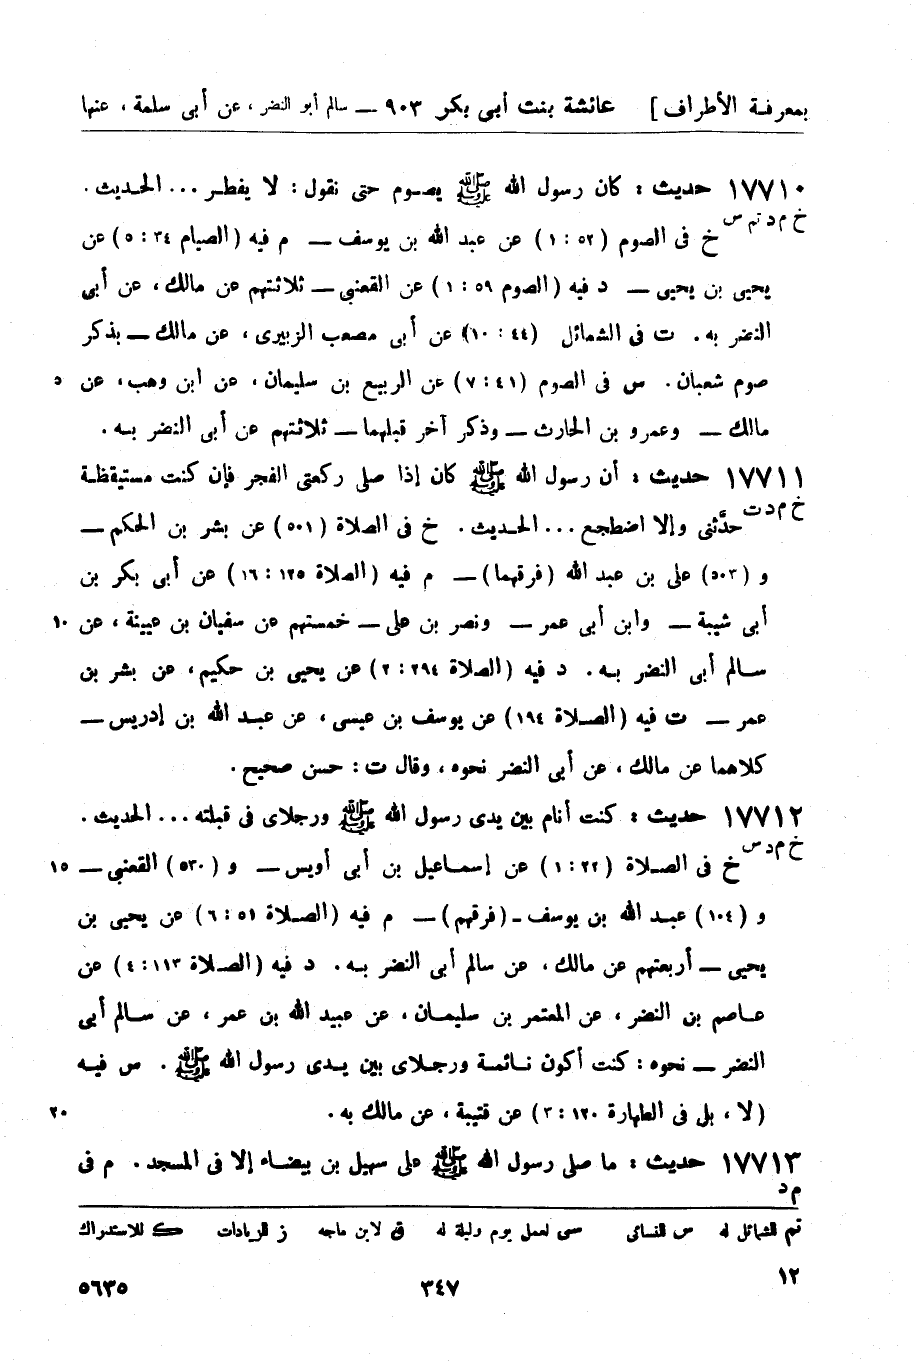 بمعرفة الأطراف ] عائشة بنت أبى بكر ٩٠٣ ــ سالم أبو النضر ، عن أبى سلمة ، عنها
١٧٧١٠ حديث : كان رسول الله ﷺ يصوم حتى نقول : لا يفطر ... الحديث .
خ م د تم س
خ فى الصوم (٥٢ : ١) عن عبد الله بن يوسف ــ م فيه (الصيام ٣٤ : ٥) عن
يحيى بن يحيى ــ د فيه (الصوم ٥٩ : ١) عن القعنبى ــ ثلاثتهم عن مالك ، عن أبى
النضر به . ت فى الشمائل (٤٤ : ١٠) عن أبى مصعب الزبيرى ، عن مالك ــ بذكر
صوم شعبان . س فى الصوم (٤١ : ٧) عن الربيع بن سليمان ، عن ابن وهب ، عن ٥
مالك ــ وعمرو بن الحارث ــ وذكر آخر قبلهما ــ ثلاثتهم عن أبى النضر بـه .
١٧٧١١ حديث : أن رسول الله ﷺ كان إذا صلى ركعتى الفجر فإن كنت مستيقظة
خ م د ت
حدَّثنى وإلا اضطجع ... الحديث . خ فى الصلاة (٥٠١) عن بشر بن الحكم ــ
و (٥٠٣) على بن عبد الله (فرقهما) ــ م فيه (الصلاة ١٢٥ : ١٦) عن أبى بكر بن
أبى شيبة ــ وابن أبى عمر ــ ونصر بن على ــ خمستهم عن سفيان بن عيينة ، عن ١٠
سالم أبى النضر بـه . د فيه (الصلاة ٢٩٤ : ٢) عن يحيى بن حكيم ، عن بشر بن
عمر ــ ت فيه (الصلاة ١٩٤) عن يوسف بن عيسى ، عن عبد الله بن إدريس ــ
كلاهما عن مالك ، عن أبى النضر نحوه ، وقال ت : حسن صحيح .
١٧٧١٢ حديث : كنت أنام بين يدى رسول الله ﷺ ورجلاى فى قبلته ... الحديث .
خ م د س
خ فى الصلاة (٢٢ : ١) عن إسماعيل بن أبى أويس ــ و (٥٣٠) القعنبى ــ ١٥
و (١٠٤) عبد الله بن يوسف ــ (فرقهم) ــ م فيه (الصلاة ٥١ : ٦) عن يحيى بن
يحيى ــ أربعتهم عن مالك ، عن سالم أبى النضر بـه . د فيه (الصلاة ١١٣ : ٤) عن
عاصم بن النضر ، عن المعتمر بن سليمان ، عن عبيد الله بن عمر ، عن سالم أبى
النضر ــ نحوه : كنت أكون نائمة ورجلاى بين يدى رسول الله ﷺ . س فيه
(لا ، بل فى الطهارة ١٢٠ : ٣) عن قتيبة ، عن مالك به . ٢٠
١٧٧١٣ حديث : ما صلى رسول الله ﷺ على سهيل بن بيضاء إلا فى المسجد . م فى
م د
تم للشمائل له س للنسائى سى لعمل يوم وليلة له ق لابن ماجه ز للزيادات ك للاستدراك
١٢
٣٤٧
٥٦٣٥